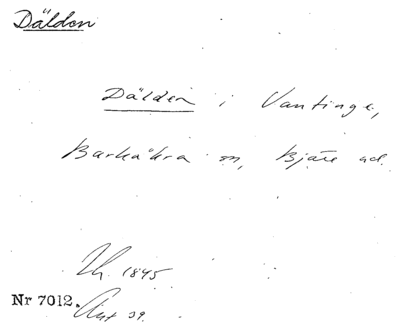 Dälden
Dälden i Vantinge,
Barkåkra sn, Bjäre hd.
Lh. 1845
Nr 7012. Ant 39.